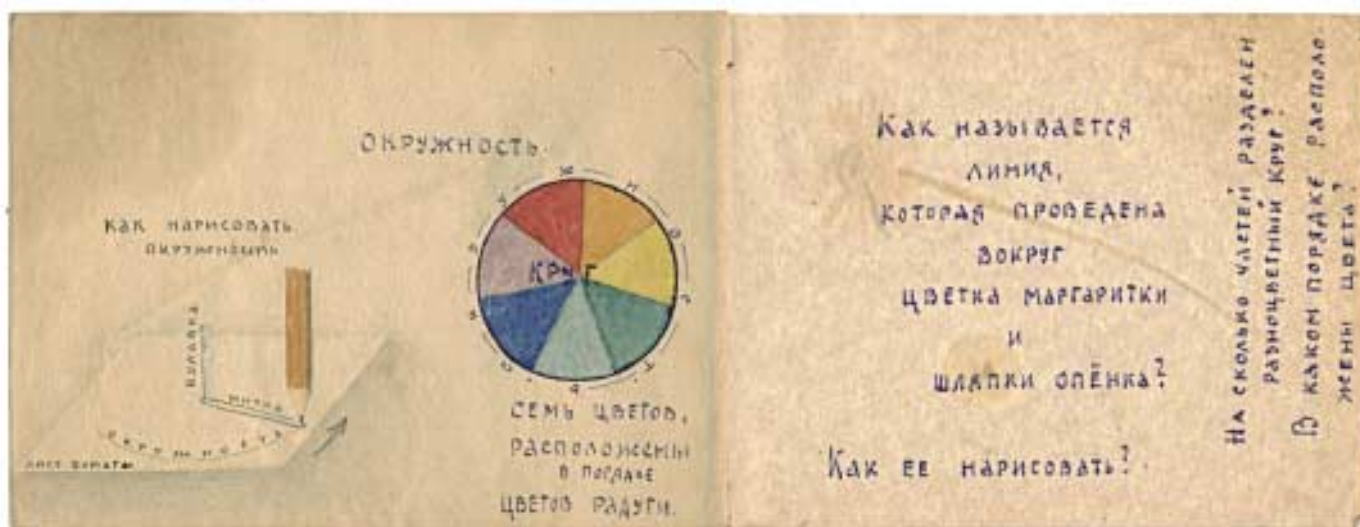 ОКРУЖНОСТЬ
КАК НАРИСОВАТЬ
ОКРУЖНОСТЬ
БУЛАВКА
НИТКА
ОКРУЖНОСТЬ
ЛИСТ БУМАГИ
ОКРУЖНОСТЬ
КРУГ
СЕМЬ ЦВЕТОВ,
РАСПОЛОЖЕНЫ
В ПОРЯДКЕ
ЦВЕТОВ РАДУГИ.
КАК НАЗЫВАЕТСЯ
ЛИНИЯ,
КОТОРАЯ ПРОВЕДЕНА
ВОКРУГ
ЦВЕТКА МАРГАРИТКИ
И
ШЛЯПКИ ОПЁНКА?
КАК ЕЕ НАРИСОВАТЬ?
НА СКОЛЬКО ЧАСТЕЙ РАЗДЕЛЕН
РАЗНОЦВЕТНЫЙ КРУГ?
В КАКОМ ПОРЯДКЕ РАСПОЛО-
ЖЕНЫ ЦВЕТА?